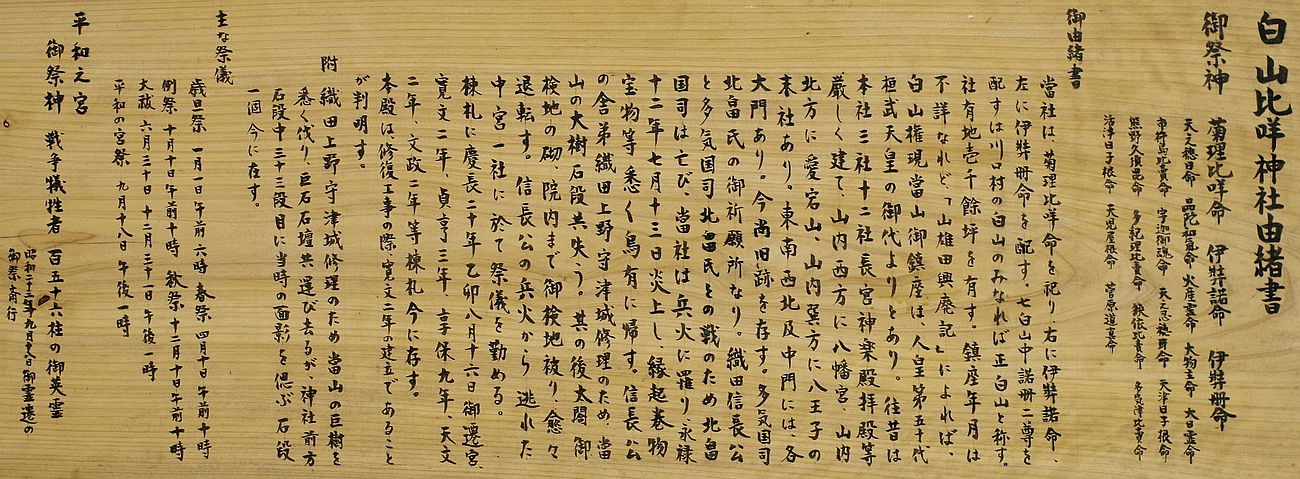 白山比咩神社由緒書
御祭神 菊理比咩命 伊弉諾命 伊弉冊命
天之穂日命 品陀和気命 火産霊命 大物主命 大日霊命
市杵島比賣命 宇迦御魂命 天之忍穂耳命 天津日子根命
熊野久須毘命 多紀理比賣命 狭依比賣命 多岐津比賣命
活津日子根命 天児屋根命 菅原道真命
御由緒書
當社は、菊理比咩命を祀り右に伊弉諾命、
左に伊弉冊命を配す。七白山中諾冊二尊を
配すは川口村の白山のみなれば正白山と称す。
社有地壱千餘坪を有す。鎮座年月は
不詳なれど、「山雄田興廃記」によれば、
白山権現當山御鎮座は、人皇第五十代
桓武天皇の御代よりとあり。往昔は
本社三社十二社長宮神楽殿拝殿等
厳しく建て、山内西方に八幡宮、山内
北方に愛宕山、山内巽方に八王子の
末社あり。東南西北及中門には、各
大門あり。今尚旧跡を存す。多気国司
北畠氏の御祈願所なり。織田信長公
と多気国司北畠氏との戦のため北畠
国司は亡び、當社は兵火に罹り永禄
十二年七月十三日炎上し、縁起巻物
宝物等悉く烏有に帰す。信長公
の舎弟織田上野守津城修理のため、當
山の大樹石段共失う。其の後太閤御
検地の砌、院内まで御検地被り、愈々
退転す。信長公の兵火から逃れた
中宮一社に於て祭儀を勤める。
棟札に慶長二十年乙卯八月十六日御遷宮、
寛文二年、貞享三年、享保九年、天文
二年、文政二年等棟札今に存す。
本殿は修復工事の際、寛文二年の建立であること
が判明す。
附 織田上野守津城修理のため當山の巨樹を
悉く伐り、巨石石壇共運び去るが、神社前方
石段中三十三段目に当時の面影を偲ぶ石段
一個今に存す。
主な祭儀
歳旦祭 一月一日午前六時 春祭 四月十日午前十時
例祭 十月十日午前十時 秋祭 十二月十日午前十時
大祓 六月三十日 十二月三十一日午後一時
平和の宮祭 九月十八日午後一時
平和之宮
御祭神 戦争犠牲者 百五十六柱の御英霊
昭和二十二年九月十八日御霊遷の
御祭斎行